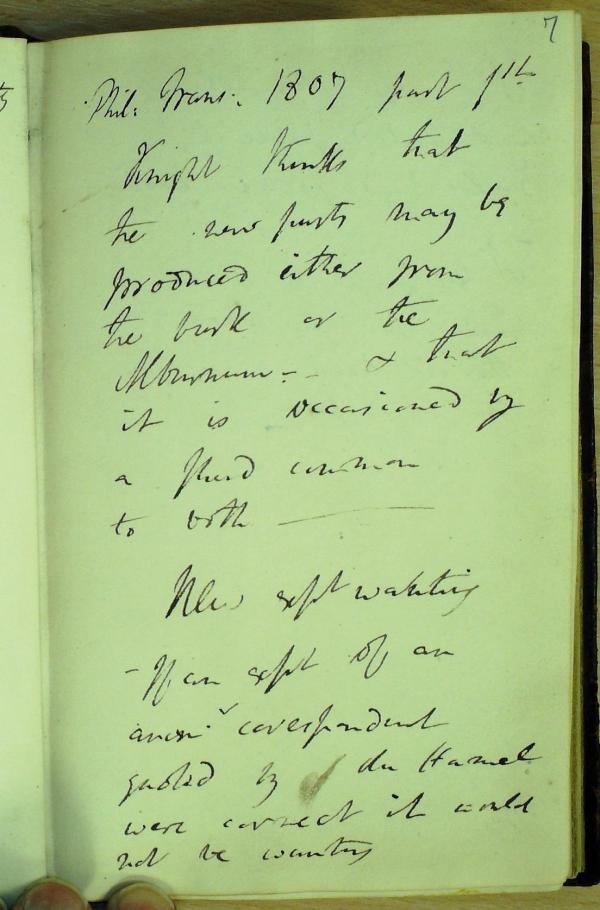 7
Phil: Trans: 1807 part 1st
Knight thinks that
the new parts may be
produced either from
the bark or the
Alburnum - & that
it is occasioned by
a fluid common
to both
New expt wanting
- If an expt of an
anon: corespondent
quoted by du Hamel
were correct it would
not be wanting